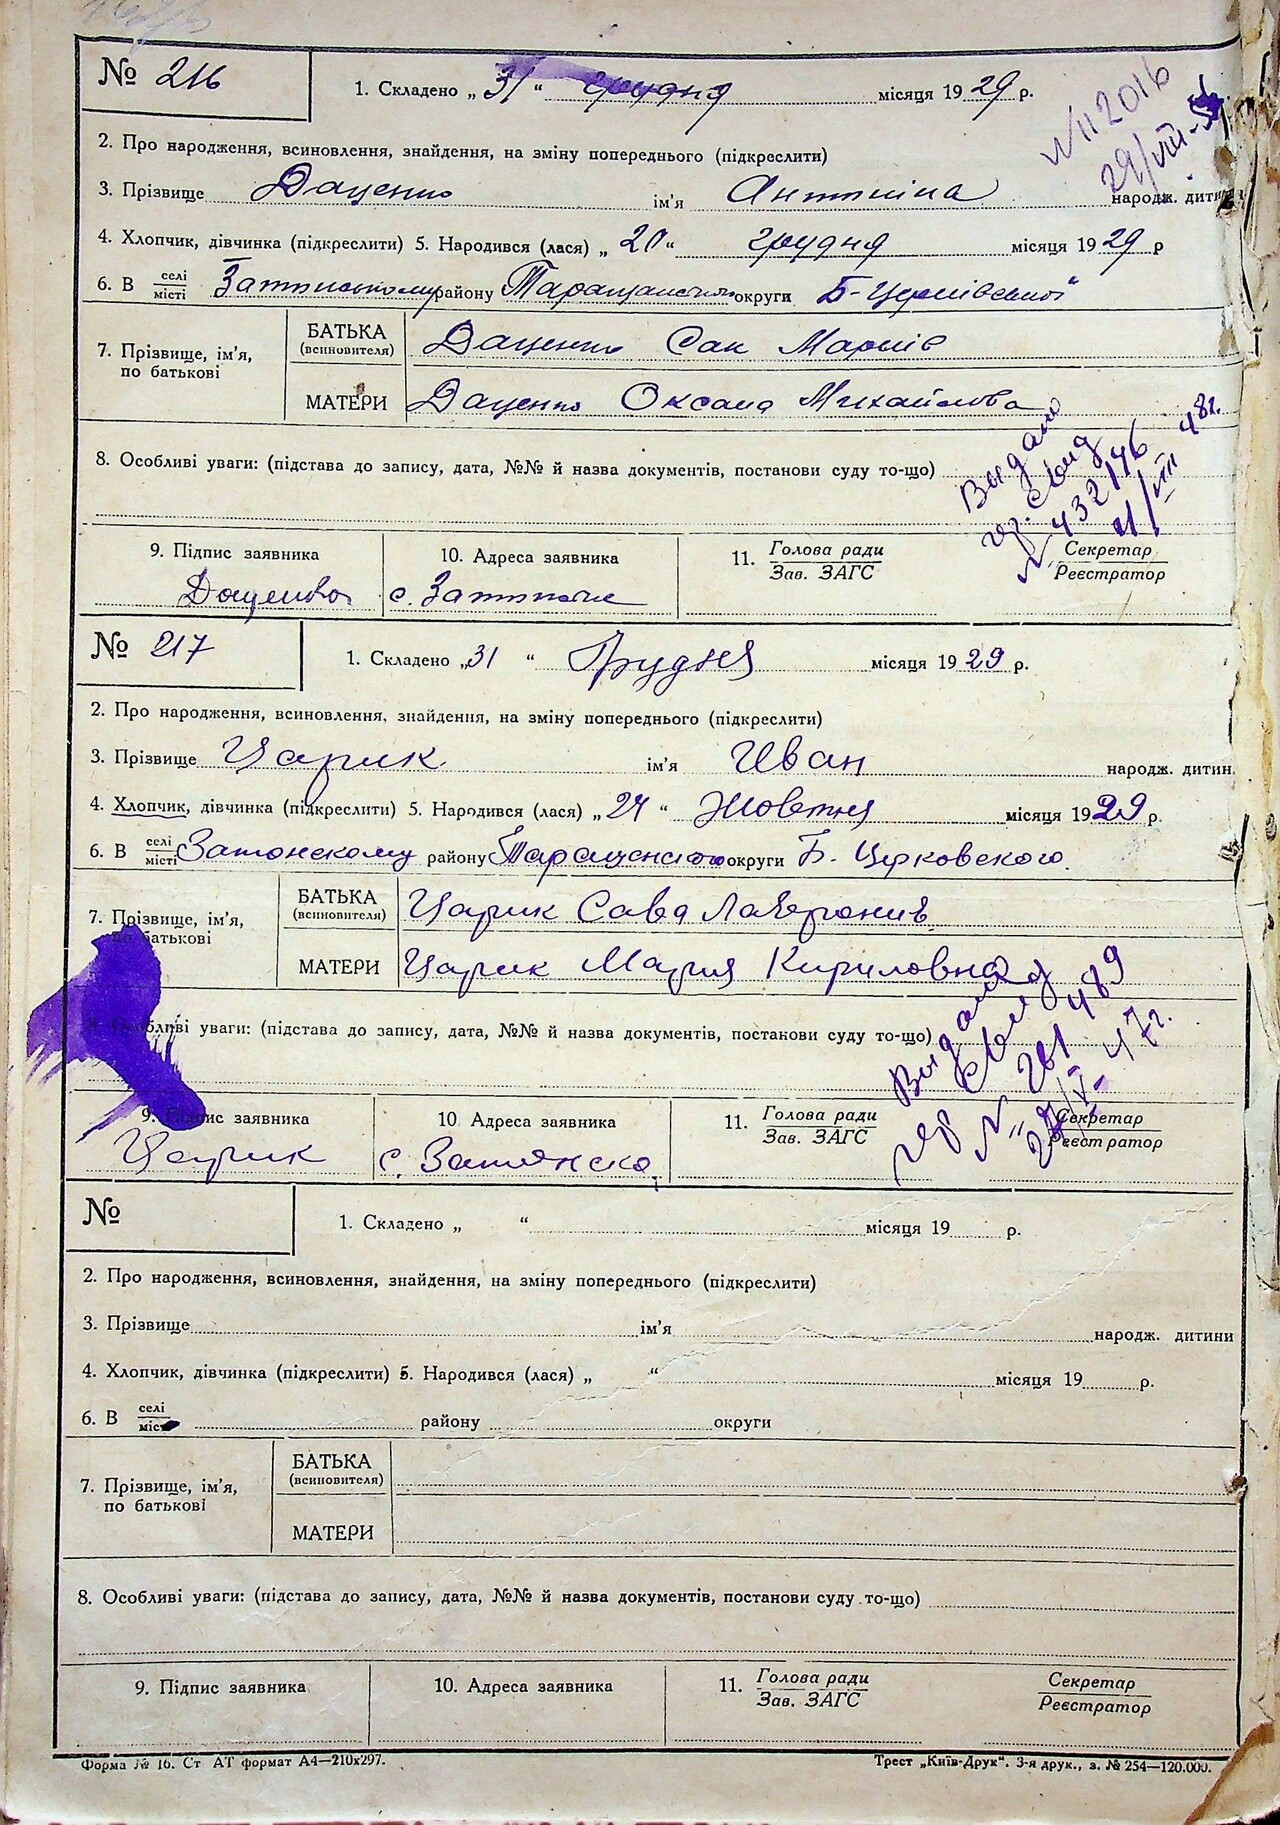 № 216
1. Складено „ 31 “ грудня місяця 1929 р.
№ 112016
29/VIII-
2. Про народження, всиновлення, знайдення, на зміну попереднього (підкреслити)
3. Прізвище Даценко ім'я Антніна народж. дитин
4. Хлопчик, дівчинка (підкреслити) 5. Народився (лася) „ 20 “ грудня місяця 1929 р
6. В селі місті району округи Б-Церківської
7. Прізвище, ім'я, по батькові
БАТЬКА (всиновителя) Даценко Сак Марків
МАТЕРИ Даценко Оксана Михайлова
8. Особливі уваги: (підстава до запису, дата, №№ й назва документів, постанови суду то-що)
Выдано
свид
№ 432146
21/VIII 48г.
9. Підпис заявника
10. Адреса заявника
11. Голова ради Зав. ЗАГС
Секретар Реєстратор
с.
№ 217
1. Складено „31 “ Грудня місяця 1929 р.
2. Про народження, всиновлення, знайдення, на зміну попереднього (підкреслити)
3. Прізвище Царик ім'я Иван народж. дитин
4. Хлопчик, дівчинка (підкреслити) 5. Народився (лася) „ 24 “ Жовтня місяця 1929 р.
6. В селі місті Затонскому району округи Б. Црковского.
7. Прізвище, ім'я, по батькові
БАТЬКА (всиновителя) Царик Сава
МАТЕРИ Царик Мария Кириловна
8. Особливі уваги: (підстава до запису, дата, №№ й назва документів, постанови суду то-що)
Выдано
свид
№ 261489
27/V- 47г.
9. Підпис заявника
10 Адреса заявника
11. Голова ради Зав. ЗАГС
Секретар Реєстратор
Царик
с. Затонско
№
1. Складено „ “ місяця 19 р.
2. Про народження, всиновлення, знайдення, на зміну попереднього (підкреслити)
3. Прізвище ім'я народж. дитини
4. Хлопчик, дівчинка (підкреслити) 5. Народився (лася) „ “ місяця 19 р.
6. В селі міст району округи
7. Прізвище, ім'я, по батькові
БАТЬКА (всиновителя)
МАТЕРИ
8. Особливі уваги: (підстава до запису, дата, №№ й назва документів, постанови суду то-що)
9. Підпис заявника
10. Адреса заявника
11. Голова ради Зав. ЗАГС
Секретар Реєстратор
Форма № 16. Ст АТ формат А4—210х297.
Трест „Київ-Друк“. 3-я друк., з. № 254—120.000.